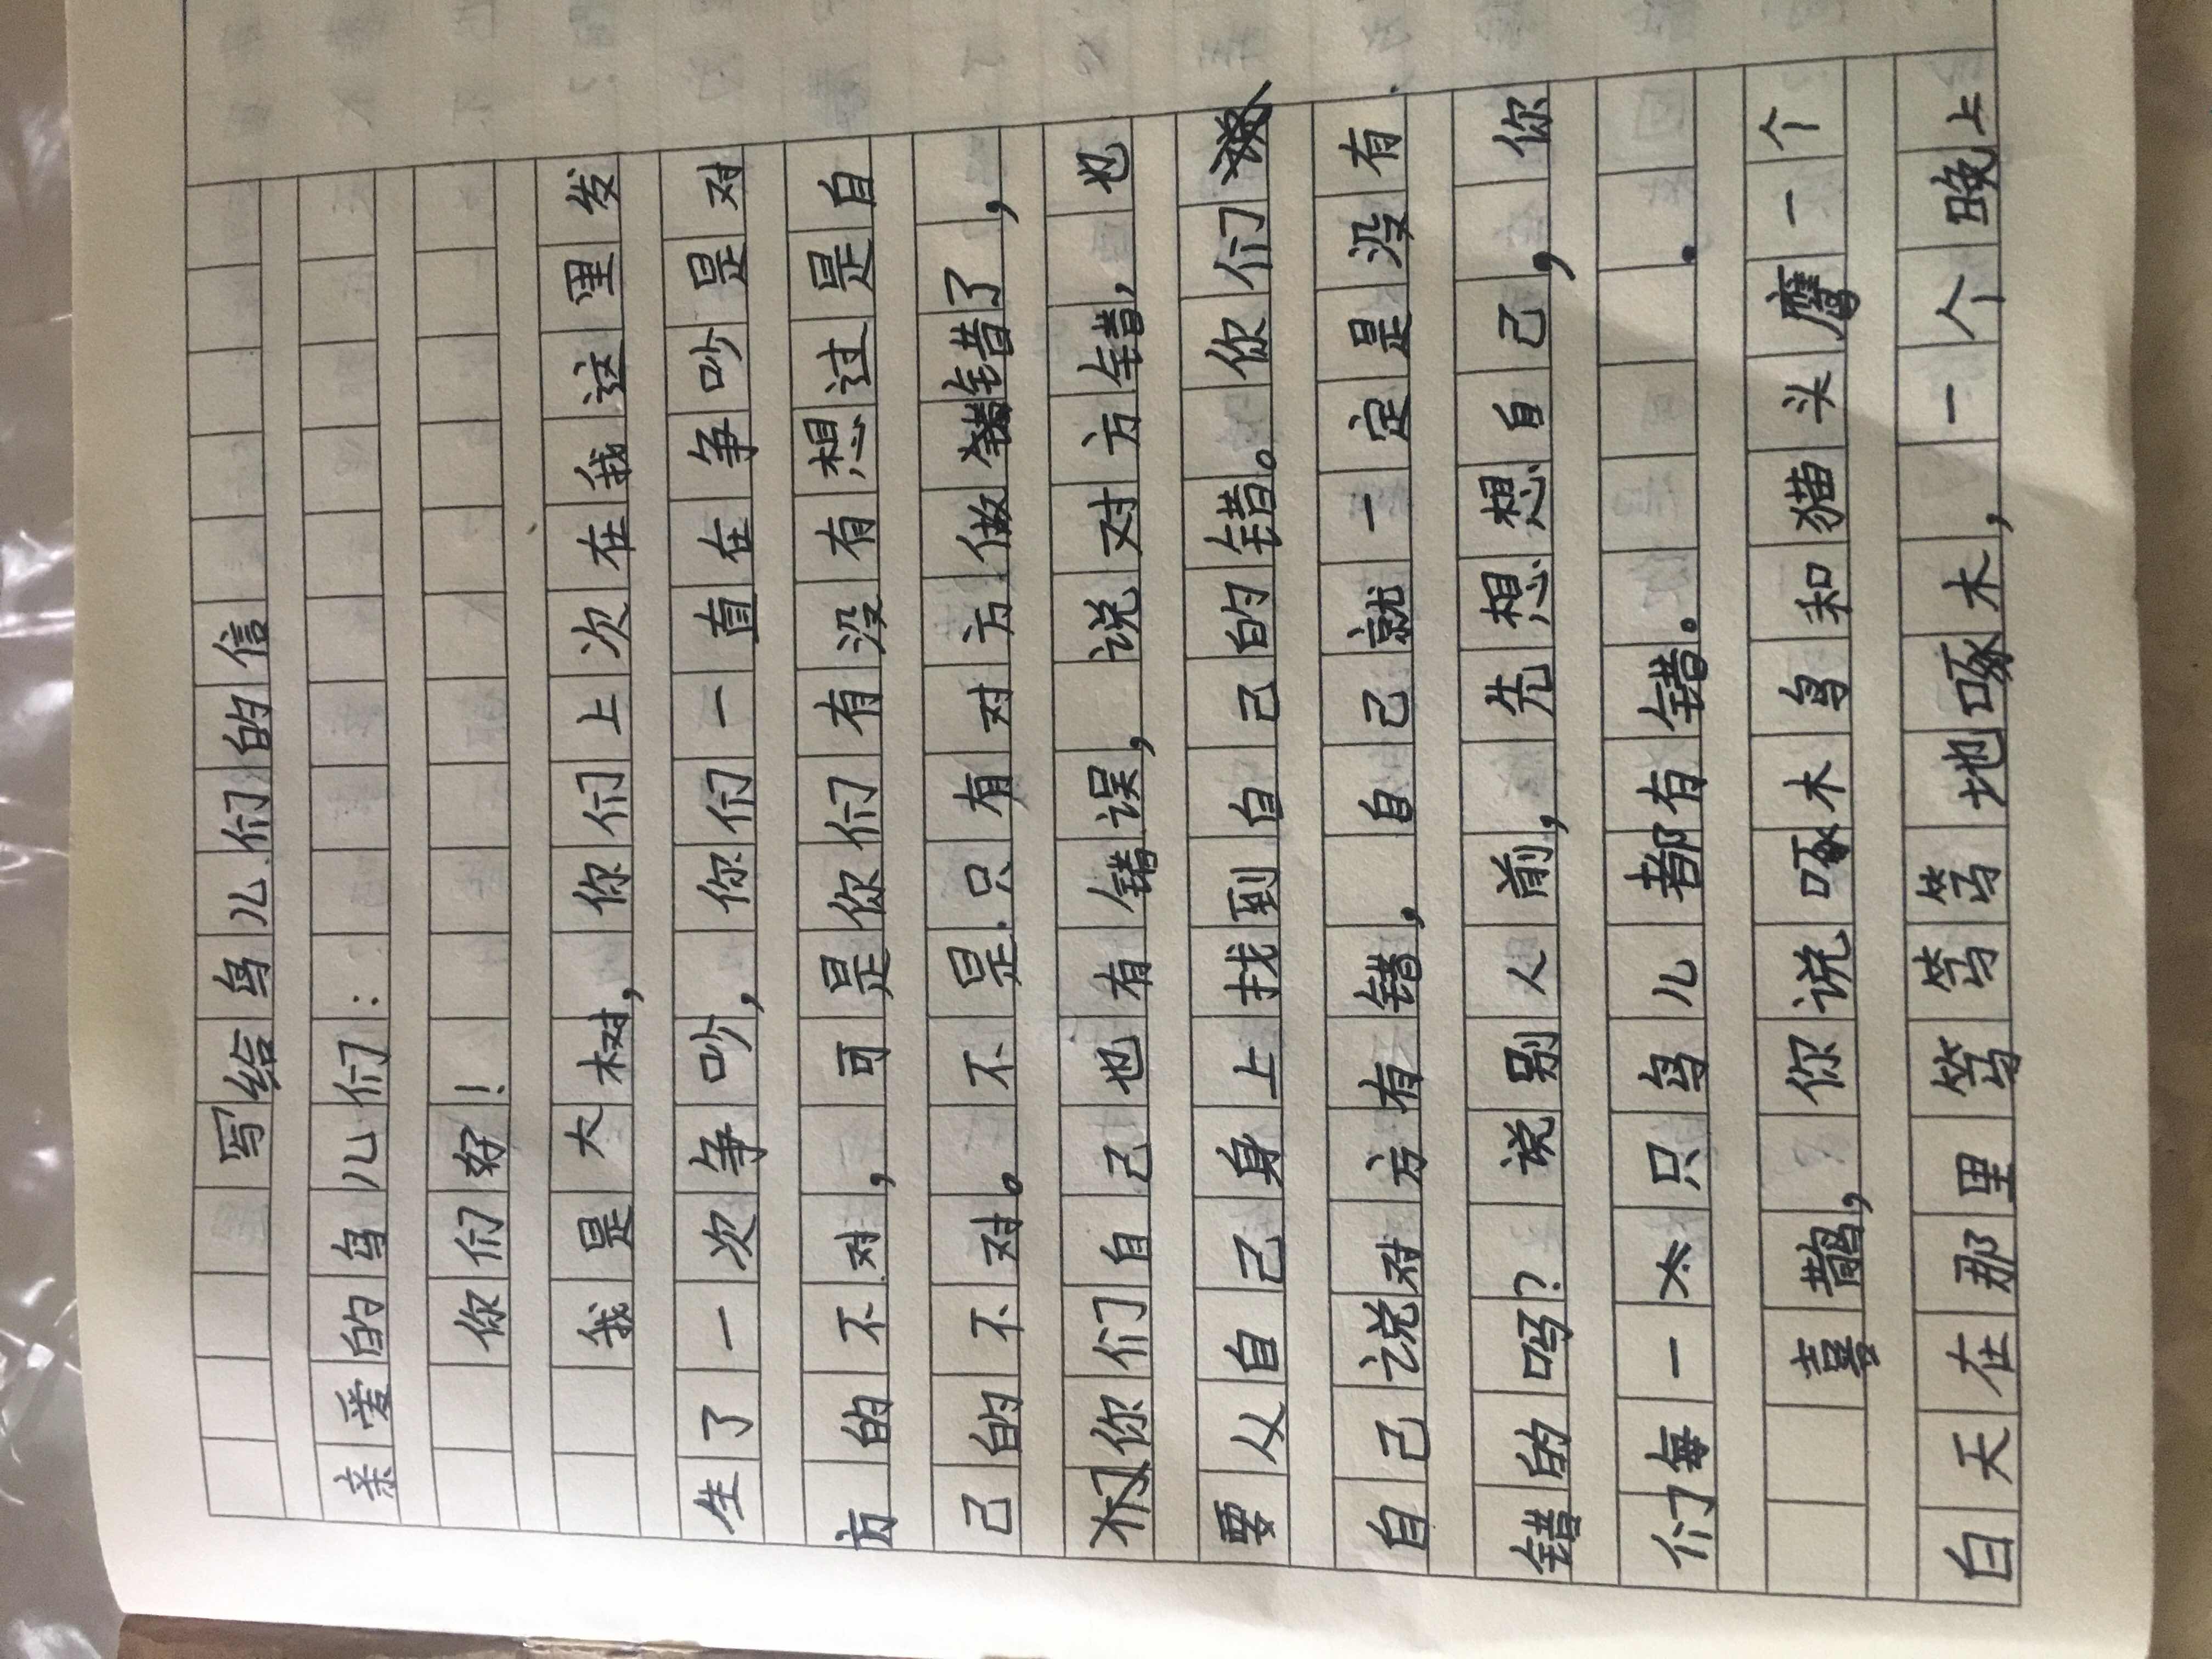 写给鸟儿们的信
亲爱的鸟儿们：
你们好！
我是大树，你们上次在我这里发
生了一次争吵，你们一直在争吵是对
方的不对，可是你们有没有想过是自
己的不对。不是只有对方做错了，
你们自己也有错误，说对方错，也
要从自己身上找到自己的错。你们
自己说对方有错，自己就一定是没有
错的吗？说别人前，先想想自己，你
们每一个只鸟儿都有错。
喜鹊，你说啄木鸟和猫头鹰一个
白天在那里笃笃笃地啄木，一个晚上